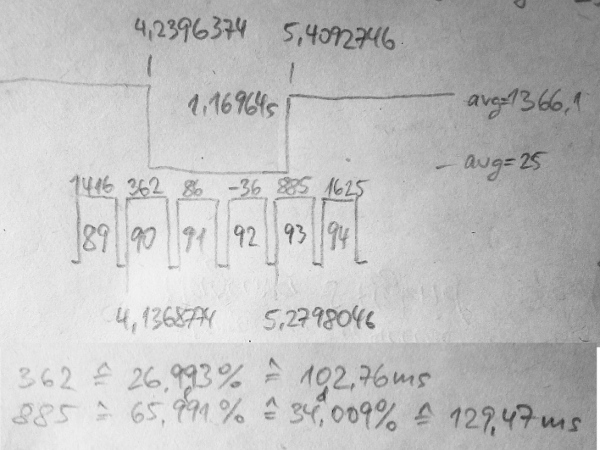 4,2396374 5,4092746
1,16964s avg=1366,1
avg=25
1416 362 86 -36 885 1625
89 90 91 92 93 94
4,1368774 5,2798046
362 ≙ 26,993% ≙ 102,76ms
885 ≙ 65,991% ≙ 34,009% ≙ 129,47ms